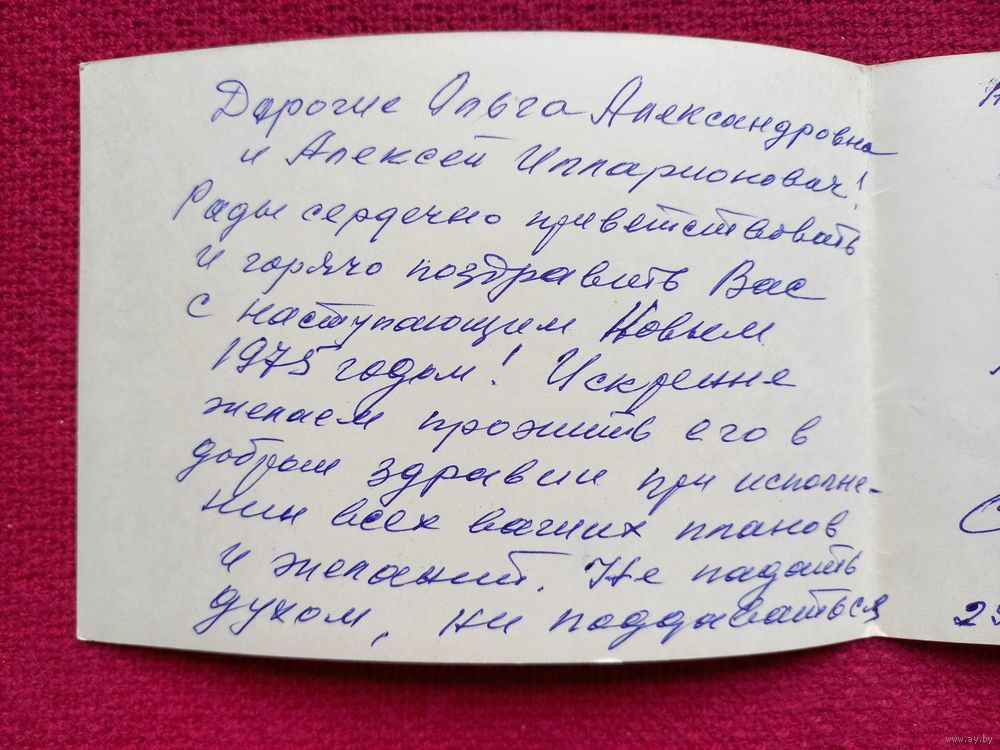 Дорогие Ольга Александровна
и Алексей Илларионович!
Рады сердечно приветствовать
и горячо поздравить Вас
с наступающим Новым
1975 годом! Искренне
желаем прожить его в
добром здравии при исполне-
нии всех ваших планов
и желаний. Не падать
духом, не поддаваться
С
23
www.ay.by